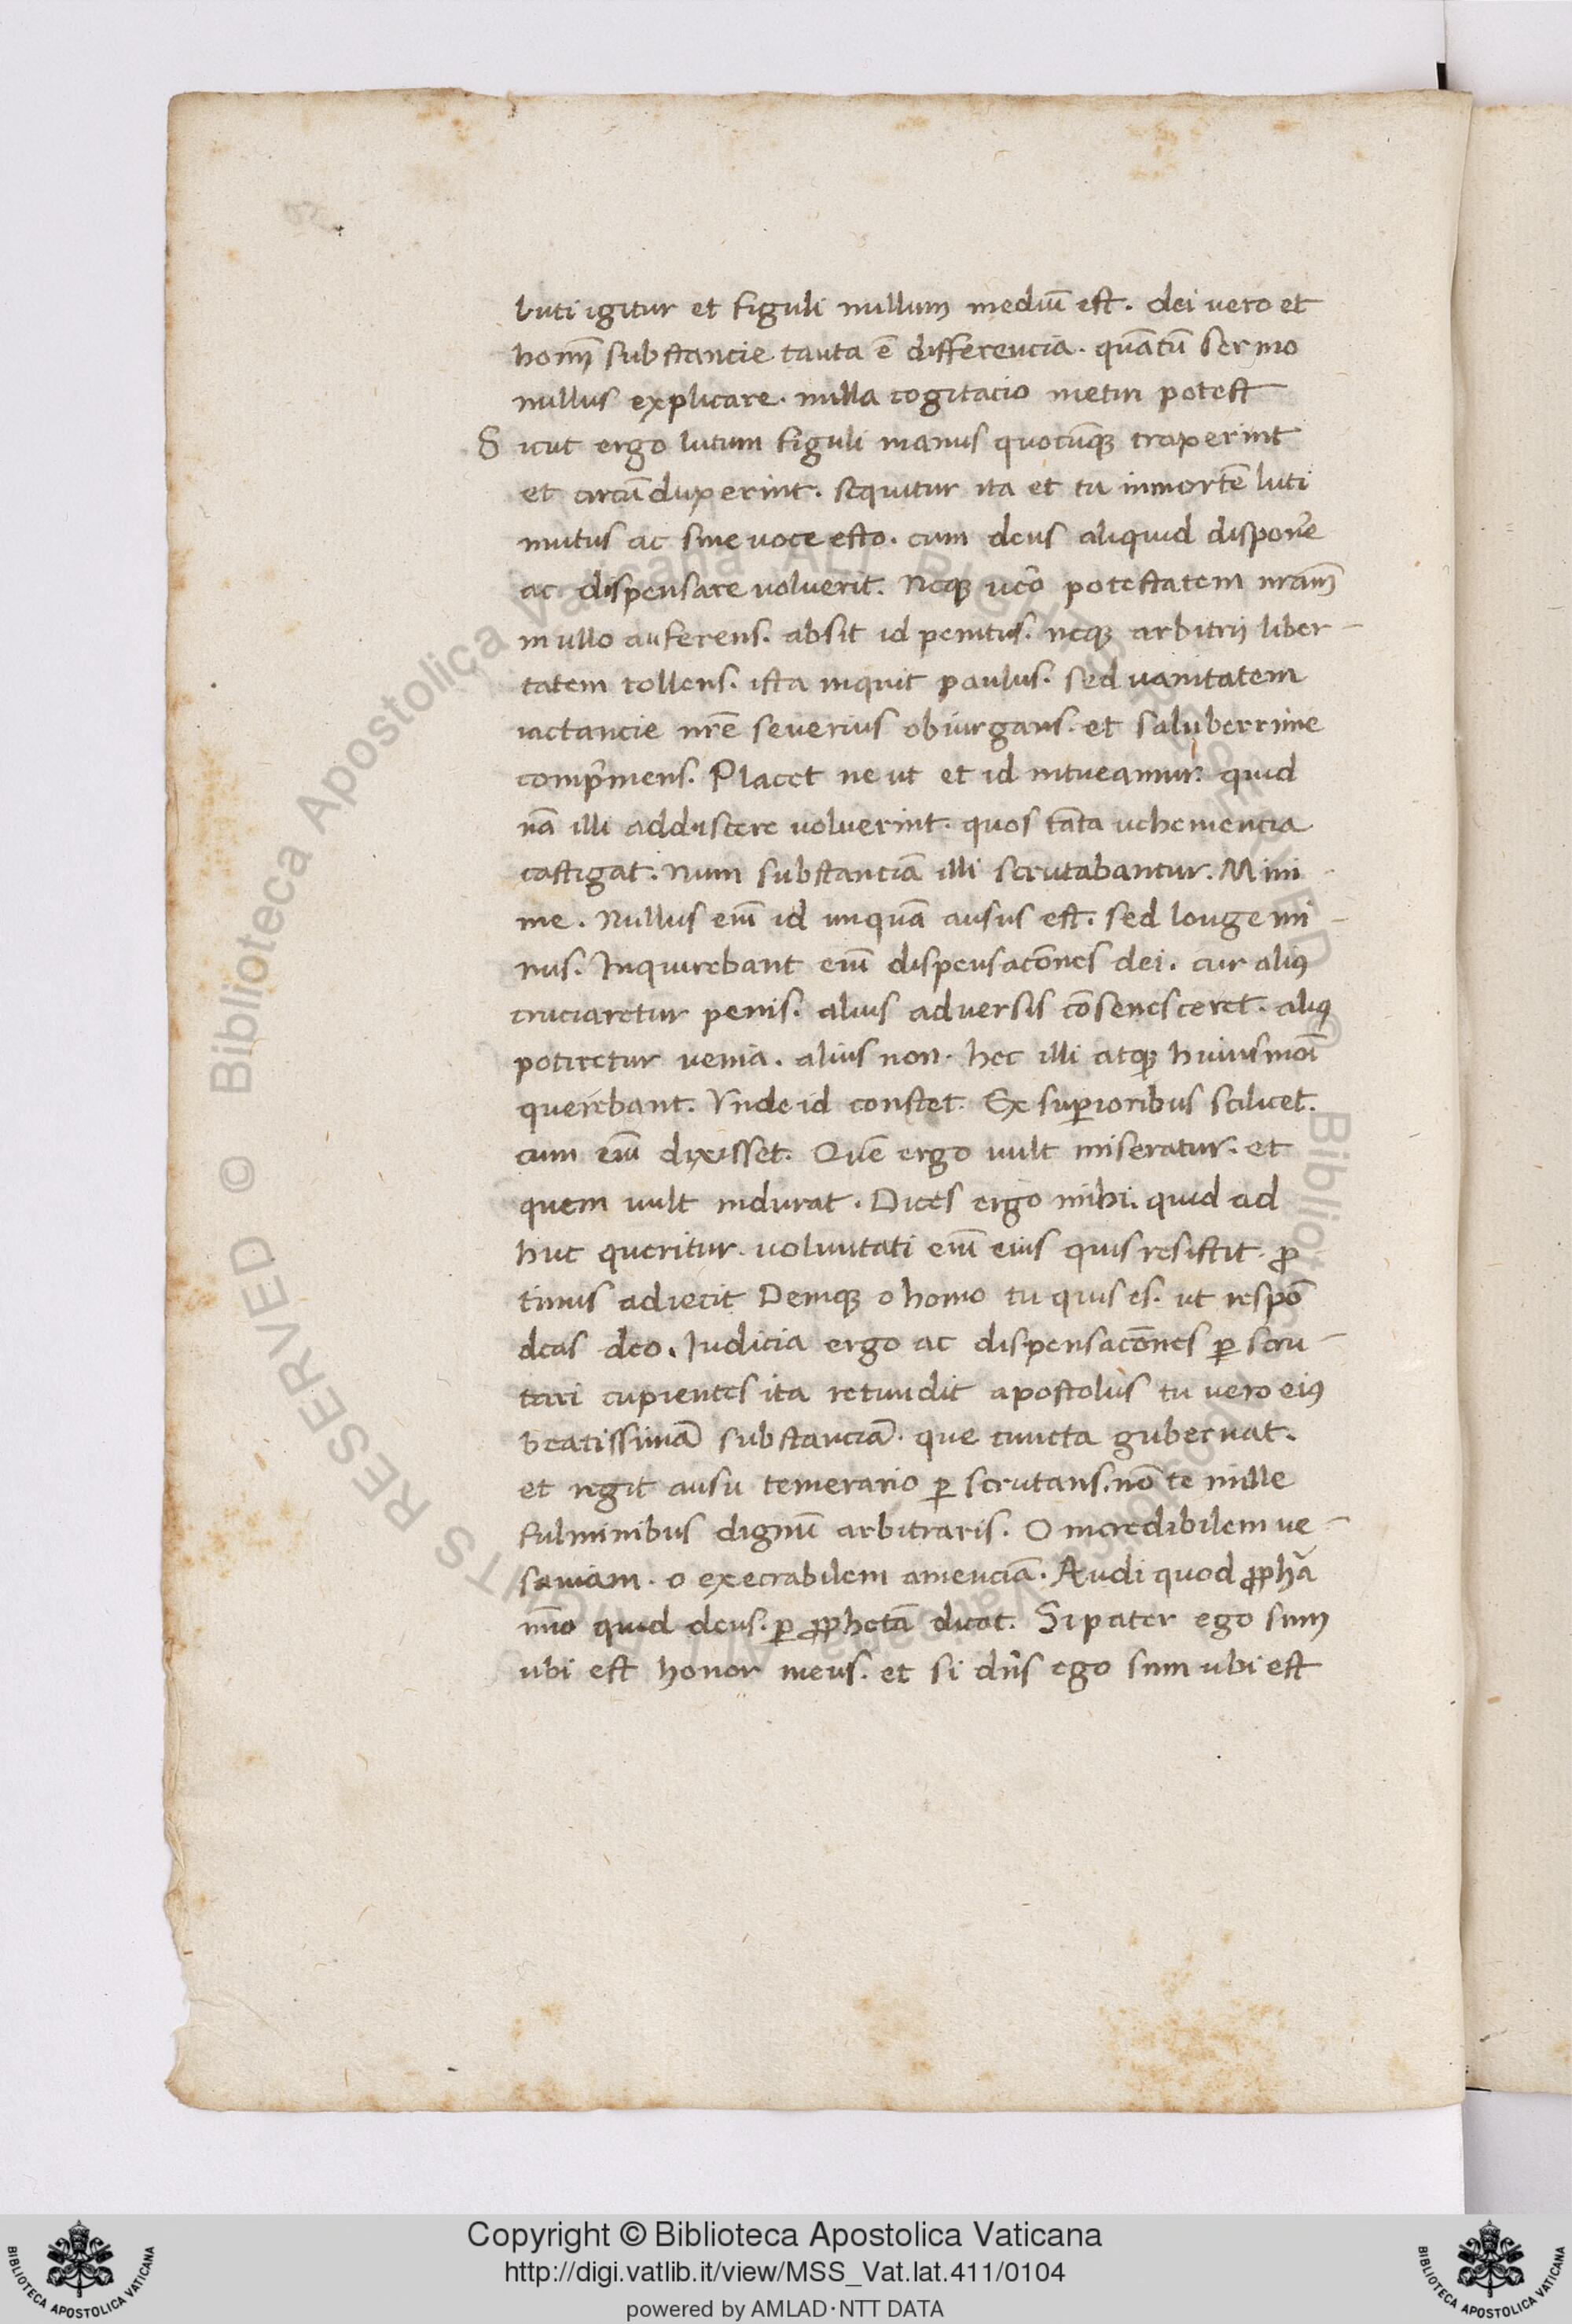 luti igitur et figuli nullum mediū est. dei vero et
homī substancie tanta ē differencia. quātū sermo
nullus explicare. nulla cogitacio metiri potest
Sicut ergo lutum figuli manus quocūqꝫ traxerint
et circūduxerint. sequitur ita et tu inmortē luti
mutus ac sine uoce esto. cum deus aliquid disponēe
ac dispensare voluerit. Neqꝫ uēo potestatem nrām
in ullo auferens. absit id penitus. neqꝫ arbitrij liber-
tatem tollens. ista inquit paulus. sed uanitatem
iactancie nrē seuerius obiurgans. et saluberrime
comp̄mens. Placet ne ut et id intueamur. quid
nā illi addiscere voluerint. quos tāta uehemencia
castigat. Num substanciā illi scrutabantur. Mini-
me. Nullus eni̅ id unquā ausus est. sed longe mi-
nus. Inquirebant eni̅ dispensacōnes dei. cur aliꝰ
cruciaretur penis. alius aduersis cōsenesceret. aliꝰ
potiretur venia. alius non. hec illi atqꝫ huiusmōi
querebant. Vnde id constet. Ex suꝑioribus scilicet.
cum eni̅ dixisset. Quē ergo uult miseratur. et
quem uult indurat. Dices ergo mihi. quid ad
huc queritur. voluntati eni̅ eius quis resistit. ꝓ
tinus adiecit Deniqꝫ o homo tu quis es. ut respō
deas deo. Iudicia ergo ac dispensacōnes ꝑ scru-
tari cupientes ita retundit apostolus tu vero eiꝰ
beatissimā substanciā. que cuncta gubernat.
et regit ausu temerario ꝑ scrutans. nō te mille
fulminibus dignū arbitraris. O incredibilem ve-
saniam. o execrabilem amenciā. Audi quod ꝓphā
im̄o quid deus. ꝑ ꝓphetā dicat. Si pater ego sum
ubi est honor meus. et si dn̄s ego sum ubi est
Copyright © Biblioteca Apostolica Vaticana
http://digi.vatlib.it/view/MSS_Vat.lat.411/0104
powered by AMLAD·NTT DATA